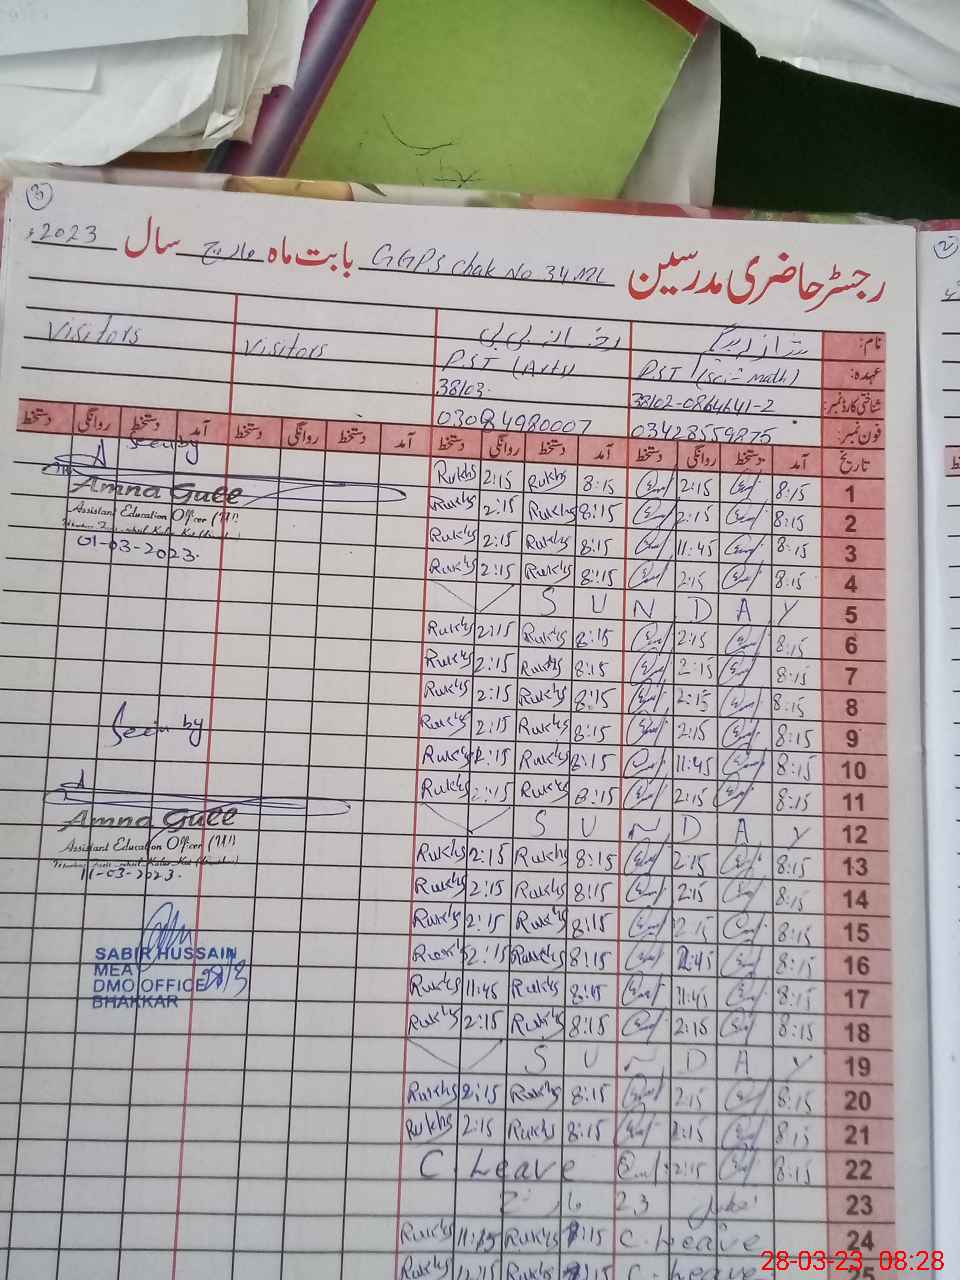 3
رجسٹر حاضری مدرسین GGPS Chak No 34 ML بابت ماہ مارچ سال 2023ء
نام:
Visitors
Visitors
عہدہ: PST (Sci-Math) PST (Arts)
شناختی کارڈ نمبر: 38102-0864641-2 38103-
فون نمبر: 03428559875 03084980007
تاریخ آمد دستخط روانگی دستخط آمد دستخط روانگی دستخط آمد دستخط روانگی دستخط آمد دستخط روانگی دستخط
1 8:15 2:15 8:15 Rukhs 2:15 Rukhs
2 8:15 2:15 8:15 Rukhs 2:15 Rukhs
3 8:15 11:45 8:15 Rukhs 2:15 Rukhs
4 8:15 2:15 8:15 Rukhs 2:15 Rukhs
5 S U N D A Y
6 8:15 2:15 8:15 Rukhs 2:15 Rukhs
7 8:15 2:15 8:15 Rukhs 2:15 Rukhs
8 8:15 2:15 8:15 Rukhs 2:15 Rukhs
9 8:15 2:15 8:15 Rukhs 2:15 Rukhs
10 8:15 11:45 8:15 Rukhs 2:15 Rukhs
11 8:15 2:15 8:15 Rukhs 2:15 Rukhs
12 S U N D A Y
13 8:15 2:15 8:15 Rukhs 2:15 Rukhs
14 8:15 2:15 8:15 Rukhs 2:15 Rukhs
15 8:15 2:15 8:15 Rukhs 2:15 Rukhs
16 8:15 8:15 Rukhs 2:15 Rukhs
17 8:15 11:45 8:15 Rukhs 11:45 Rukhs
18 8:15 2:15 8:15 Rukhs 2:15 Rukhs
19 S U N D A Y
20 8:15 2:15 8:15 Rukhs 2:15 Rukhs
21 8:15 2:15 8:15 Rukhs 2:15 Rukhs
22 8:15 2:15 C. Leave
23
24 C. Leave Rukhs Rukhs
25 C. Leave Rukhs
Seen by
Amna Gull
Assistant Education Officer
01-03-2023.
Seen by
Amna Gull
Assistant Education Officer
11-03-2023.
SABIR HUSSAIN
MEA
DMO OFFICE 28/3
BHAKKAR
28-03-23 08:28